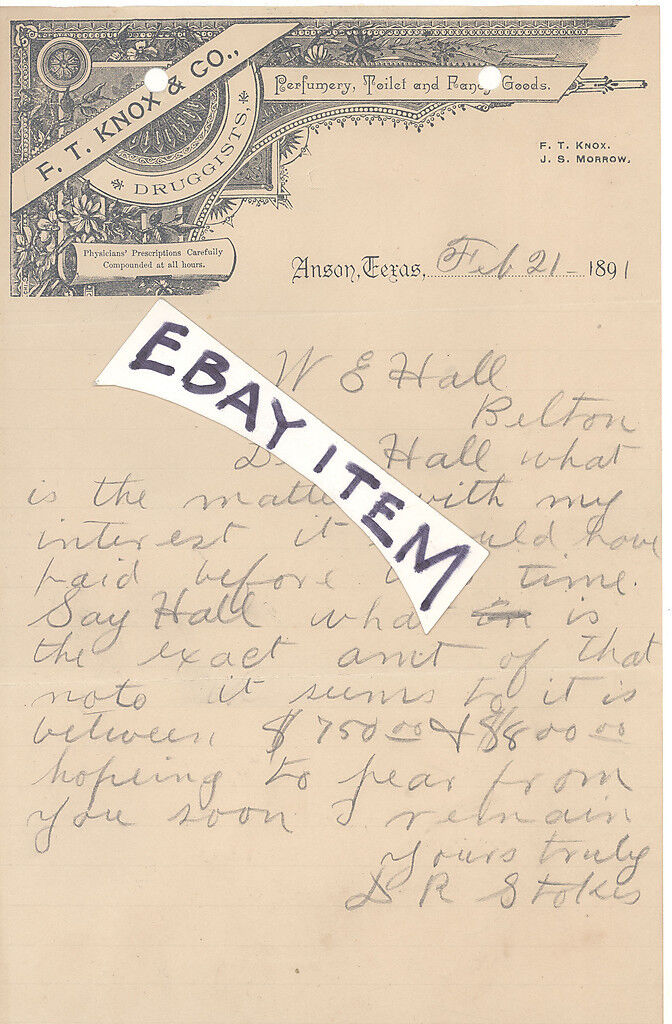 F. T. KNOX & CO.,
DRUGGISTS,
Perfumery, Toilet and Fancy Goods.
F. T. KNOX.
J. S. MORROW,
Physicians' Prescriptions Carefully
Compounded at all hours.
Anson, Texas, Feb 21 - 1891
EBAY ITEM
W E Hall
Belton
Hall what
is the with my
interest it have
paid before time.
Say Hall what is
the exact amt of that
noto it seums to it is
between $750.00 & $800.00
hopeing to hear from
you soon I remain
yours truly
D R Stokes